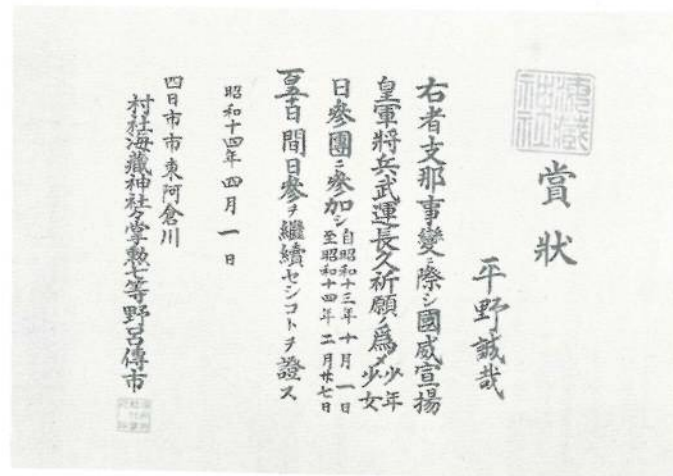 海藏神社
賞狀
平野誠哉
右者支那事變ニ際シ國威宣揚
皇軍將兵武運長久祈願ノ爲メ少年少女
日參團ニ參加シ自昭和十三年十月一日至昭和十四年二月廿七日
百五十日間日參ヲ繼續セシコトヲ證ス
昭和十四年四月一日
四日市市東阿倉川
村社海藏神社々掌勲七等野呂傳市